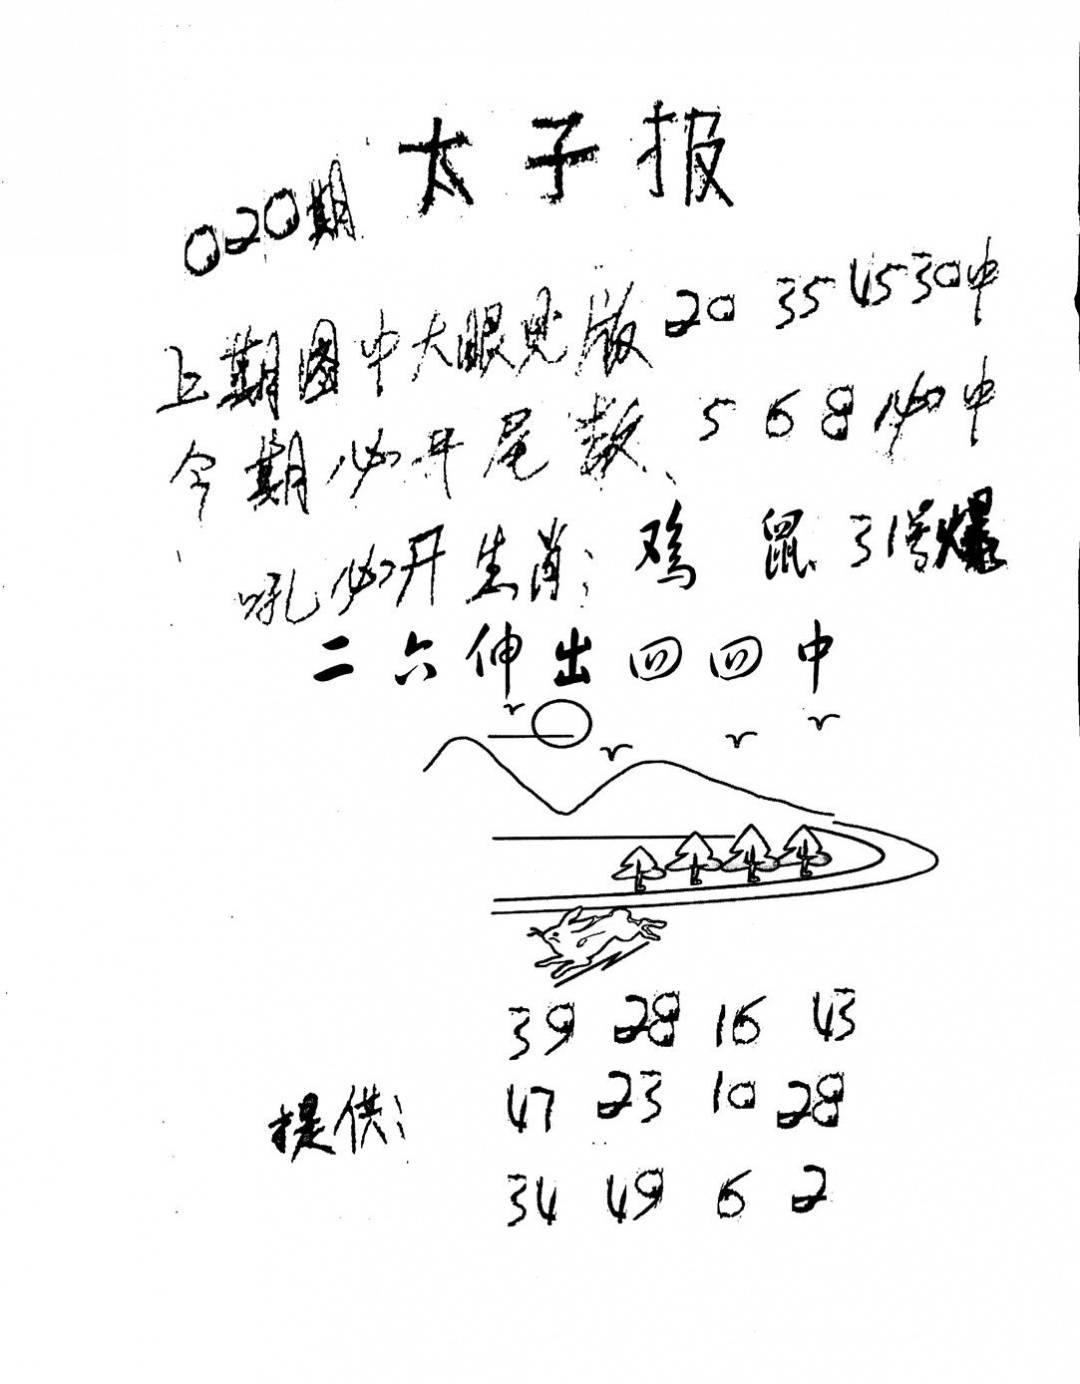 太子报
020期
上期图中大眼见版20 35 45 30中
今期必开尾数、5 6 8必中
吼必开生肖：鸡 鼠 引爆
二六伸出四四中
39 28 16 43
提供： 47 23 10 28
34 49 6 2